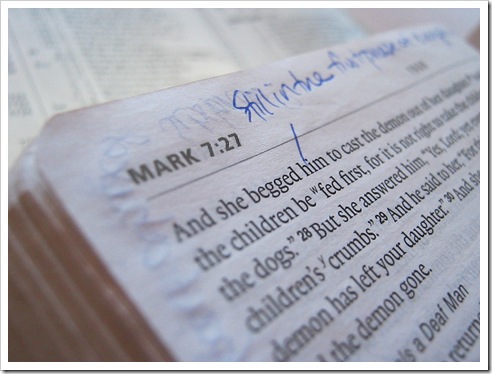 Still in the first
MARK 7:27
And she begged him to cast the demon out of her daughter.
the children be fed first, for it is not right to take the
the dogs." 28 But she answered him, "Yes, Lord; yet
children's crumbs." 29 And he said to her, "For
demon has left your daughter." 30 And she
the demon gone.
a Deaf Man
returned